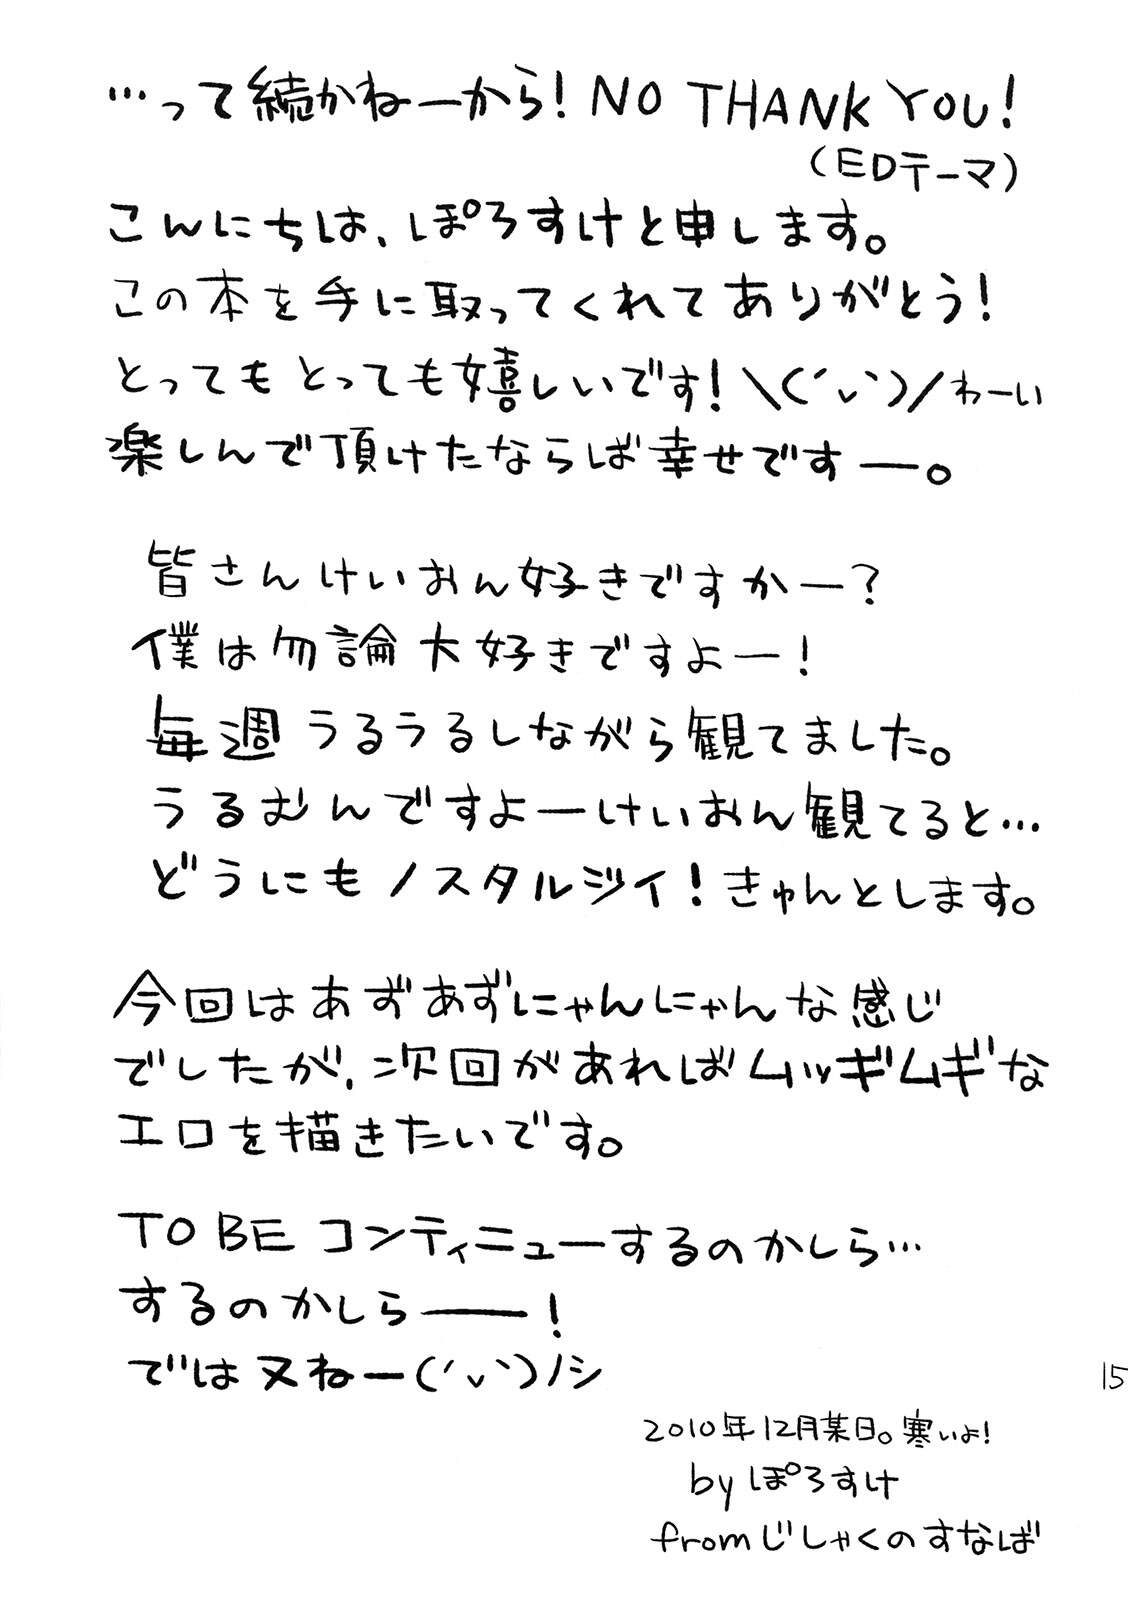 …って続かねーから！NO THANK YOU！
（EDテーマ）
こんにちは、ぽろすけと申します。
この本を手に取ってくれてありがとう！
とってもとっても嬉しいです！＼(´ι_｀)／わーい
楽しんで頂けたならば幸せですー。
皆さんけいおん好きですかー？
僕は勿論大好きですよー！
毎週うるうるしながら観てました。
うるむんですよーけいおん観てると…
どうにもノスタルジイ！きゅんとします。
今回はあずあずにゃんにゃんな感じ
でしたが、次回があればムッギムギな
エロを描きたいです。
TO BE コンティニューするのかしら…
するのかしらーー！
では又ねー(´ι_｀)ノシ
15
2010年12月某日。寒いよ！
by ぽろすけ
fromじしゃくのすなば